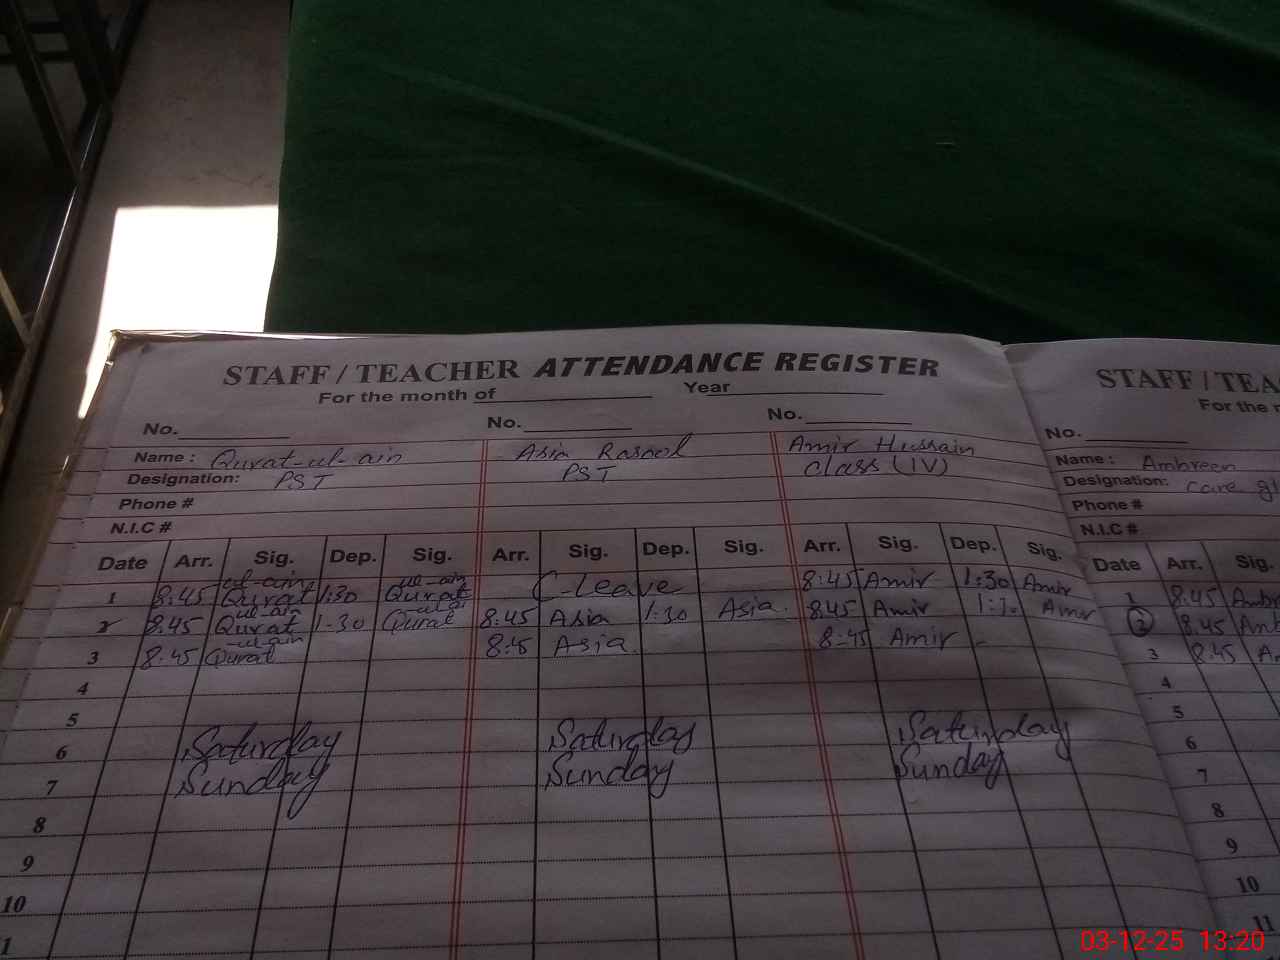 STAFF / TEACHER ATTENDANCE REGISTER
For the month of Year
No. No. No.
Name : Qurat-ul-ain Asia Rasool Amir Hussain
Designation: PST PST Class (IV)
Phone #
N.I.C #
Date Arr. Sig. Dep. Sig. Arr. Sig. Dep. Sig. Arr. Sig. Dep. Sig.
1 8:45 Qurat ul-ain 1:30 Qurat ul-ain C-Leave 8:45 Amir 1:30 Amir
2 8:45 Qurat ul-ain 1-30 Qurat 8:45 Asia 1:30 Asia 8:45 Amir Amir
3 8:45 Qurat ulain 8:45 Asia 8:45 Amir
4
5
6 Saturday Saturday Saturday
7 Sunday Sunday Sunday
8
9
10
1
STAFF / TEA
For the
No.
Name : Ambreen
Designation: Care
Phone #
N.I.C #
Date Arr. Sig
1 8:45
2 8:45
3 8:45
4
5
6
7
8
9
10
11
03-12-25 13:20